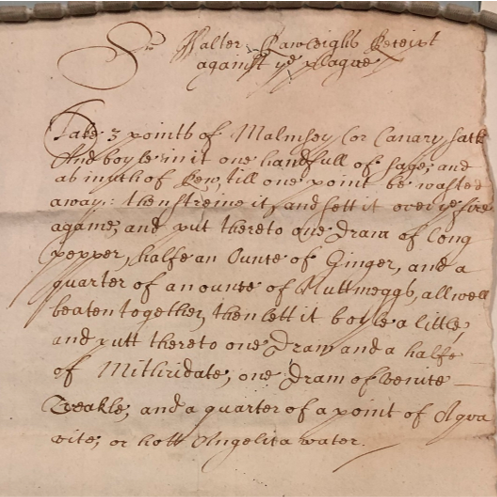 Sr Walter Rawleighs Receipt
against ye plague
Take 3 points of Malmsey (or Canary sack
And boyle in it one handfull of sage, and
as much of Rew, till one point be wasted
away: then streine it, and sett it over ye fire
againe, and put thereto one dram of long
pepper, halfe an Ounce of Ginger, and a
quarter of an ounce of Nuttmeggs, all well
beaten together, then lett it boyle a little,
and putt thereto one dram and a halfe
of Mithridate, one dram of Venice
Treakle, and a quarter of a point of Aqva
vite, or hott Angelica water.